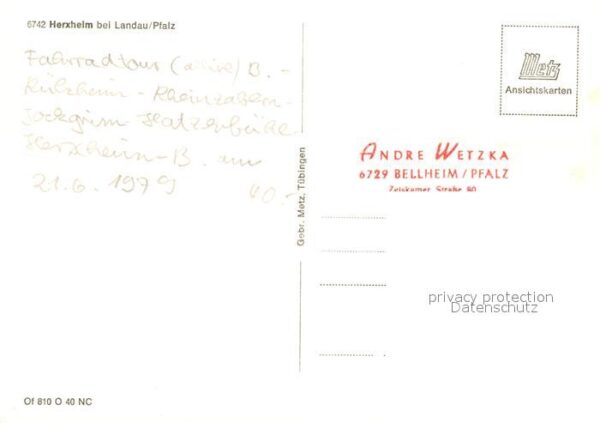 6742 Herxheim bei Landau/Pfalz
Fahrradtour (alive) B. -
Rülzheim - Rheinzabern -
Jockgrim - Hatzenbühl
Herxheim - B. am
21.6.1979 40.-
Metz
Ansichtskarten
ANDRE WETZKA
6729 BELLHEIM/PFALZ
Zeiskamer Straße 80
Gebr. Metz, Tübingen
privacy protection
Datenschutz
Of 810 O 40 NC